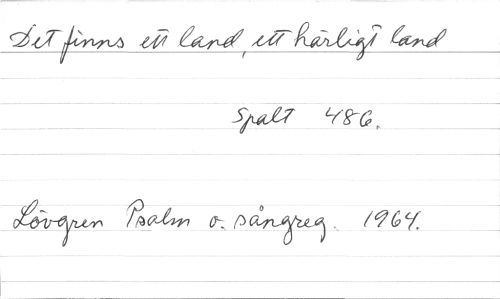 Det finns ett land, ett härligt land
Spalt 486.
Lövgren Psalm o. sångreg. 1964.